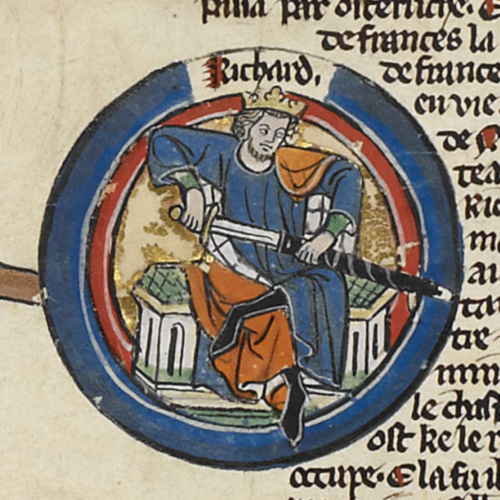 par osteriche. E
de frances la
Richard,
de france
en vie
de se
tea
Ric
m
au
ta
tre
mm
le chast
ost ke le r
occupe. E la fu